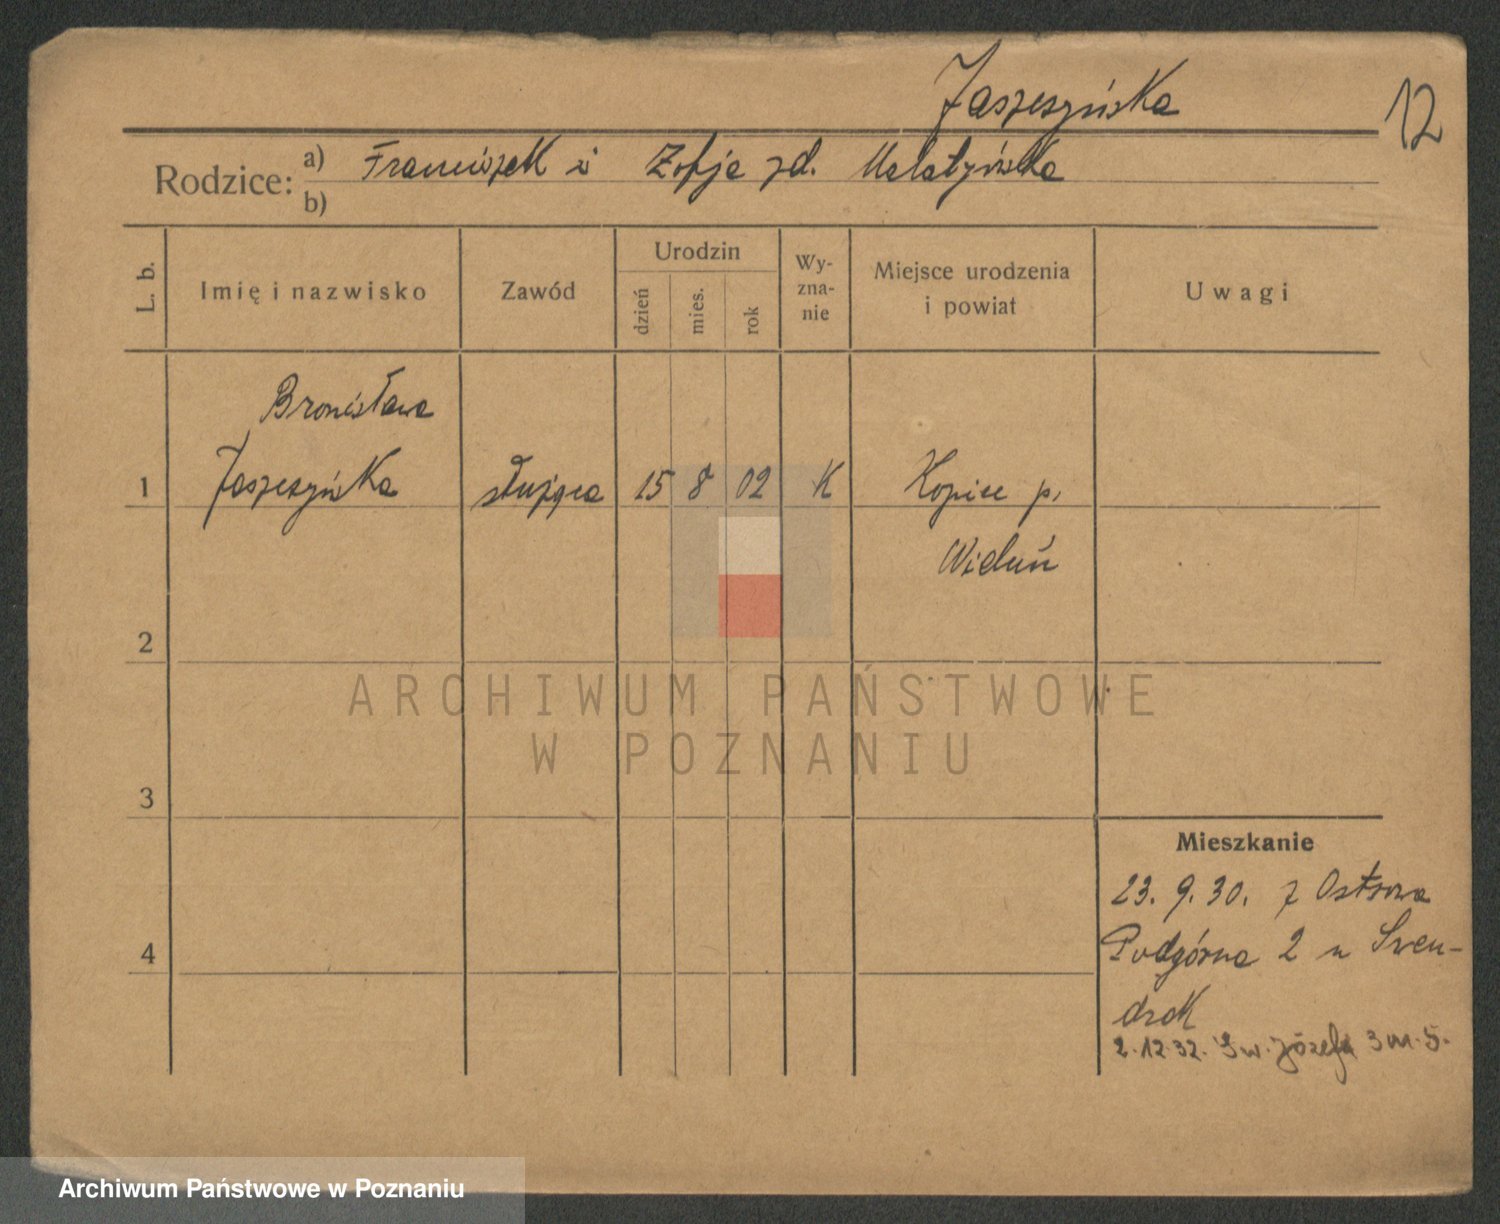 Jaszeszyńska
12
Rodzice: a) Franciszek i Zofja zd. Malatyńska
b)
L. b.
Imię i nazwisko
Zawód
Urodzin
dzień
mies.
rok
Wy-
zna-
nie
Miejsce urodzenia
i powiat
Uwagi
Bronisława
1 Jaszeszyńska służąca 15 8 02 K Kopice p.
Wieluń
2
ARCHIWUM PAŃSTWOWE
W POZNANIU
3
Mieszkanie
23. 9. 30. z Ostrowa
4 Podgórna 2 u
2.12.32. Św. Józefa 3 m. 5.
Archiwum Państwowe w Poznaniu